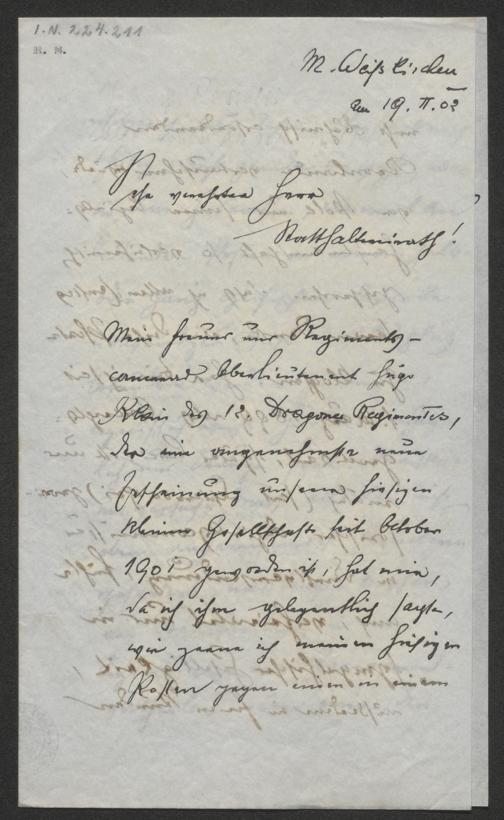 I.N. 224.211
H. N.
M. Weißkirchen
den 19. II. 02
Sehr verehrter Herr
Statthaltereirath!
Mein Freund und Regiments-
camerad Oberlieutenant Hugo
Klein des 12. Dragoner Regimentes,
der eine angenehmste neue
Erscheinung unserer hiesigen
kleinen Gesellschaft seit October
1901 geworden ist, hat mir,
da ich ihm gelegentlich sagte,
wie gerne ich meinen hiesigen
Posten gegen einen in einem